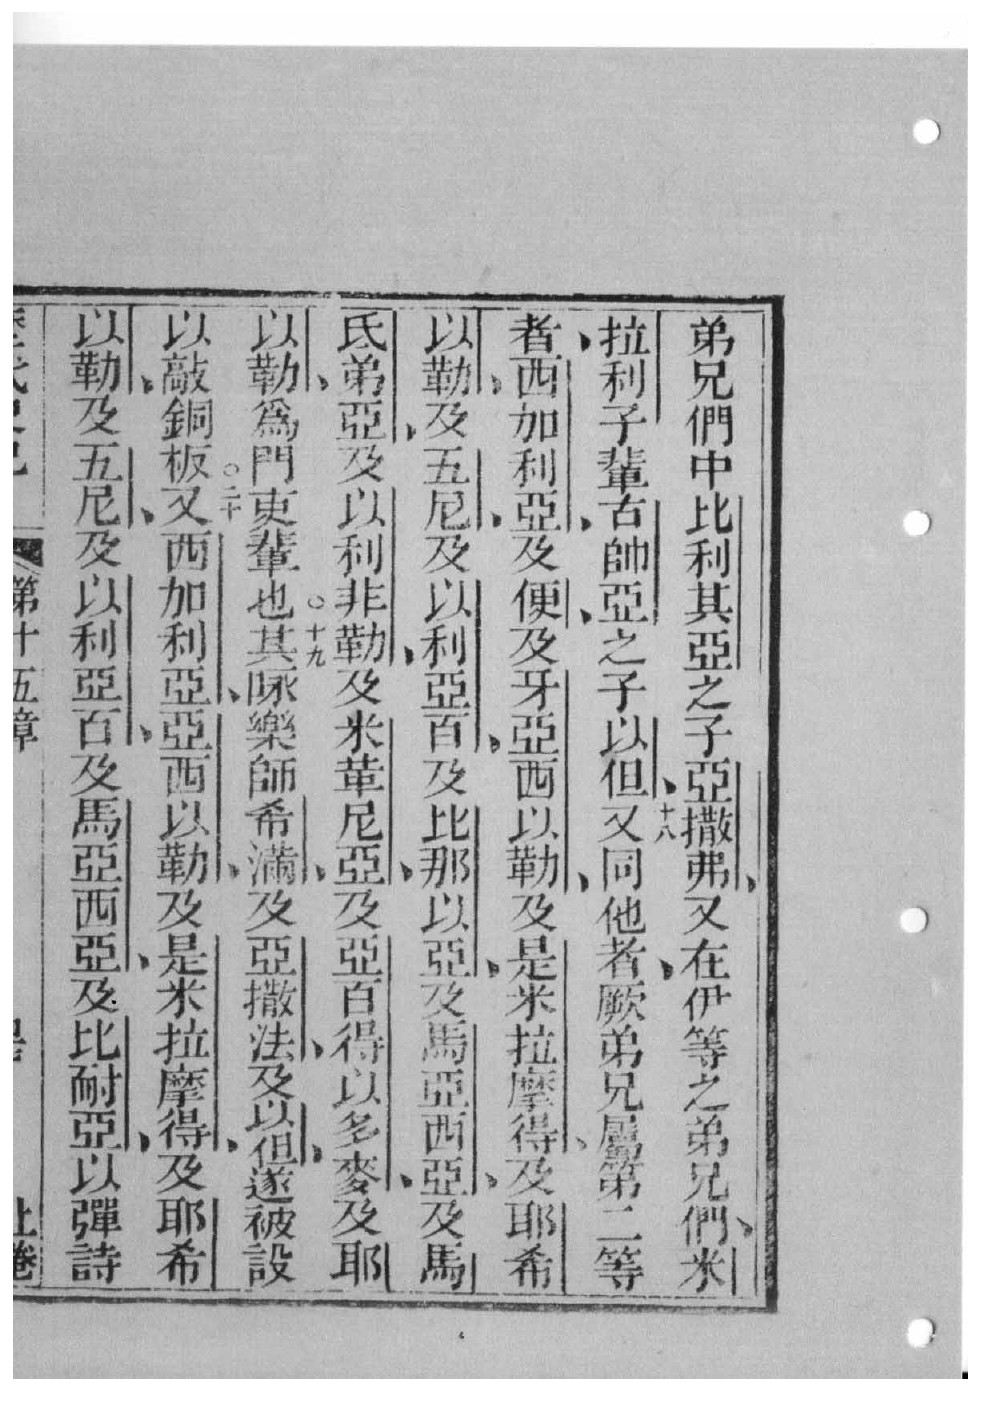 弟兄們中比利其亞之子亞撒弗又在伊等之弟兄們、米
拉利子輩古帥亞之子以但、十八又同他者、厥弟兄屬第二等
者、西加利亞、及便、及牙亞西以勒、及是米拉摩得、及耶希
以勒、及五尼、及以利亞百、及比那以亞、及馬亞西亞、及馬
氐弟亞、及以利非勒、及米葦尼亞、及亞百得以多麥、及耶
以勒、爲門吏輩也○十九其咏樂師希滿、及亞撒法、及以但、遂被設
以敲銅板○二十又西加利亞、亞西以勒、及是米拉摩得、及耶希
以勒、及五尼、及以利亞百、及馬亞西亞、及比耐亞、以彈詩
歷代史記 第十五章 上卷